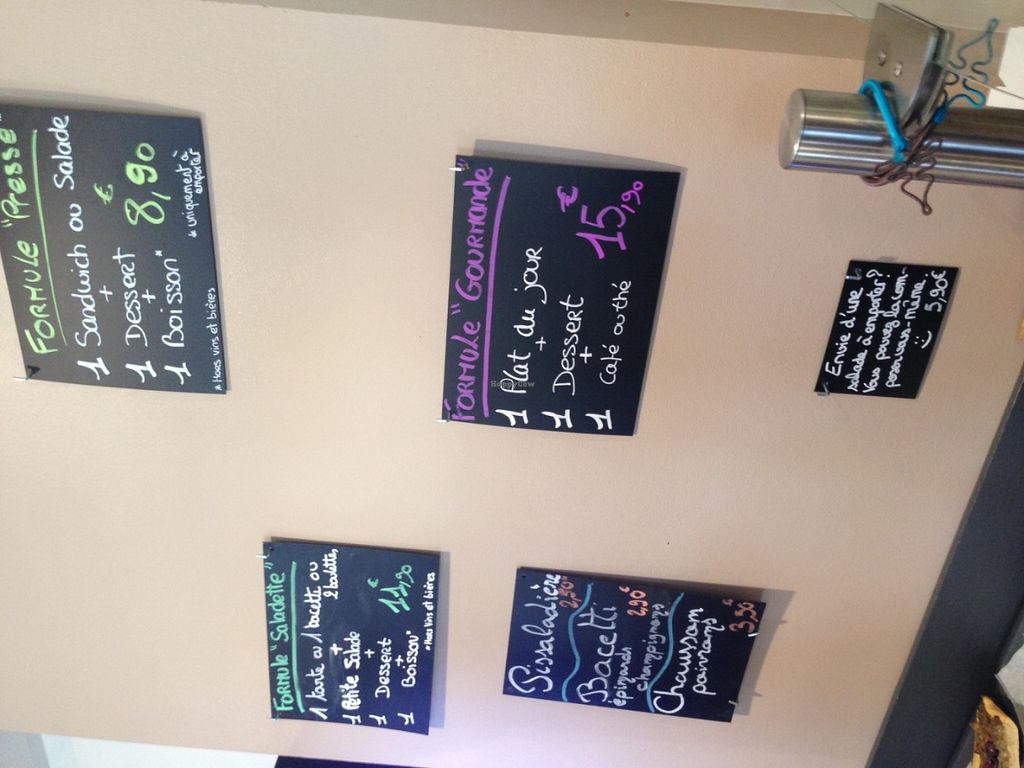 FORMULE "Presse"
1 Sandwich ou Salade
+
1 Dessert
+
1 Boisson*
€
8,90
* uniquement à
emporter
* Hors vins et bières
FORMULE "Saladette"
1 tarte ou 1 bacetti ou
2 boulettes
+
1 Petite Salade
+
1 Dessert
+
1 Boisson*
€
11,90
*Hors vins et bières
FORMULE "GOURMANDE"
1 Plat du jour
+
1 Dessert
+
1 Café ou thé
€
15,90
Pissaladière
2,50€
Bacetti
épinards 2,90€
champignons
Chausson
poivrons
3,50€
Envie d'une
salade à emporter?
Vous pouvez la com-
poser vous-même!
5,90€
HappyCow